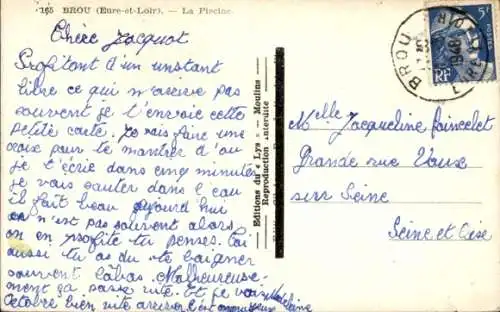 165 BROU (Eure-et-Loir). — La Piscine.
Chère Jacquot
Profitant d'un instant
libre ce qui n'arrive pas
souvent je t'envoie cette
petite carte. Je vais faire une
croix pour te montrer d'ou
je t'écrie dans cinq minutes
je vais sauter dans l'eau
il fait beau aujourd'hui
ce n'est pas souvent alors
on en profite tu penses. Toi
aussi tu as du te baigner
souvent labas. Malheureuse-
ment ça passe vite. Et je vois Madeleine
Octobre bien vite arriver c'est
Editions du "Lys" — Moulins
Reproduction Interdite
BROU
1948
EURE
5F
RF
Melle Jacqueline
Grande rue
sur Seine
Seine et Oise